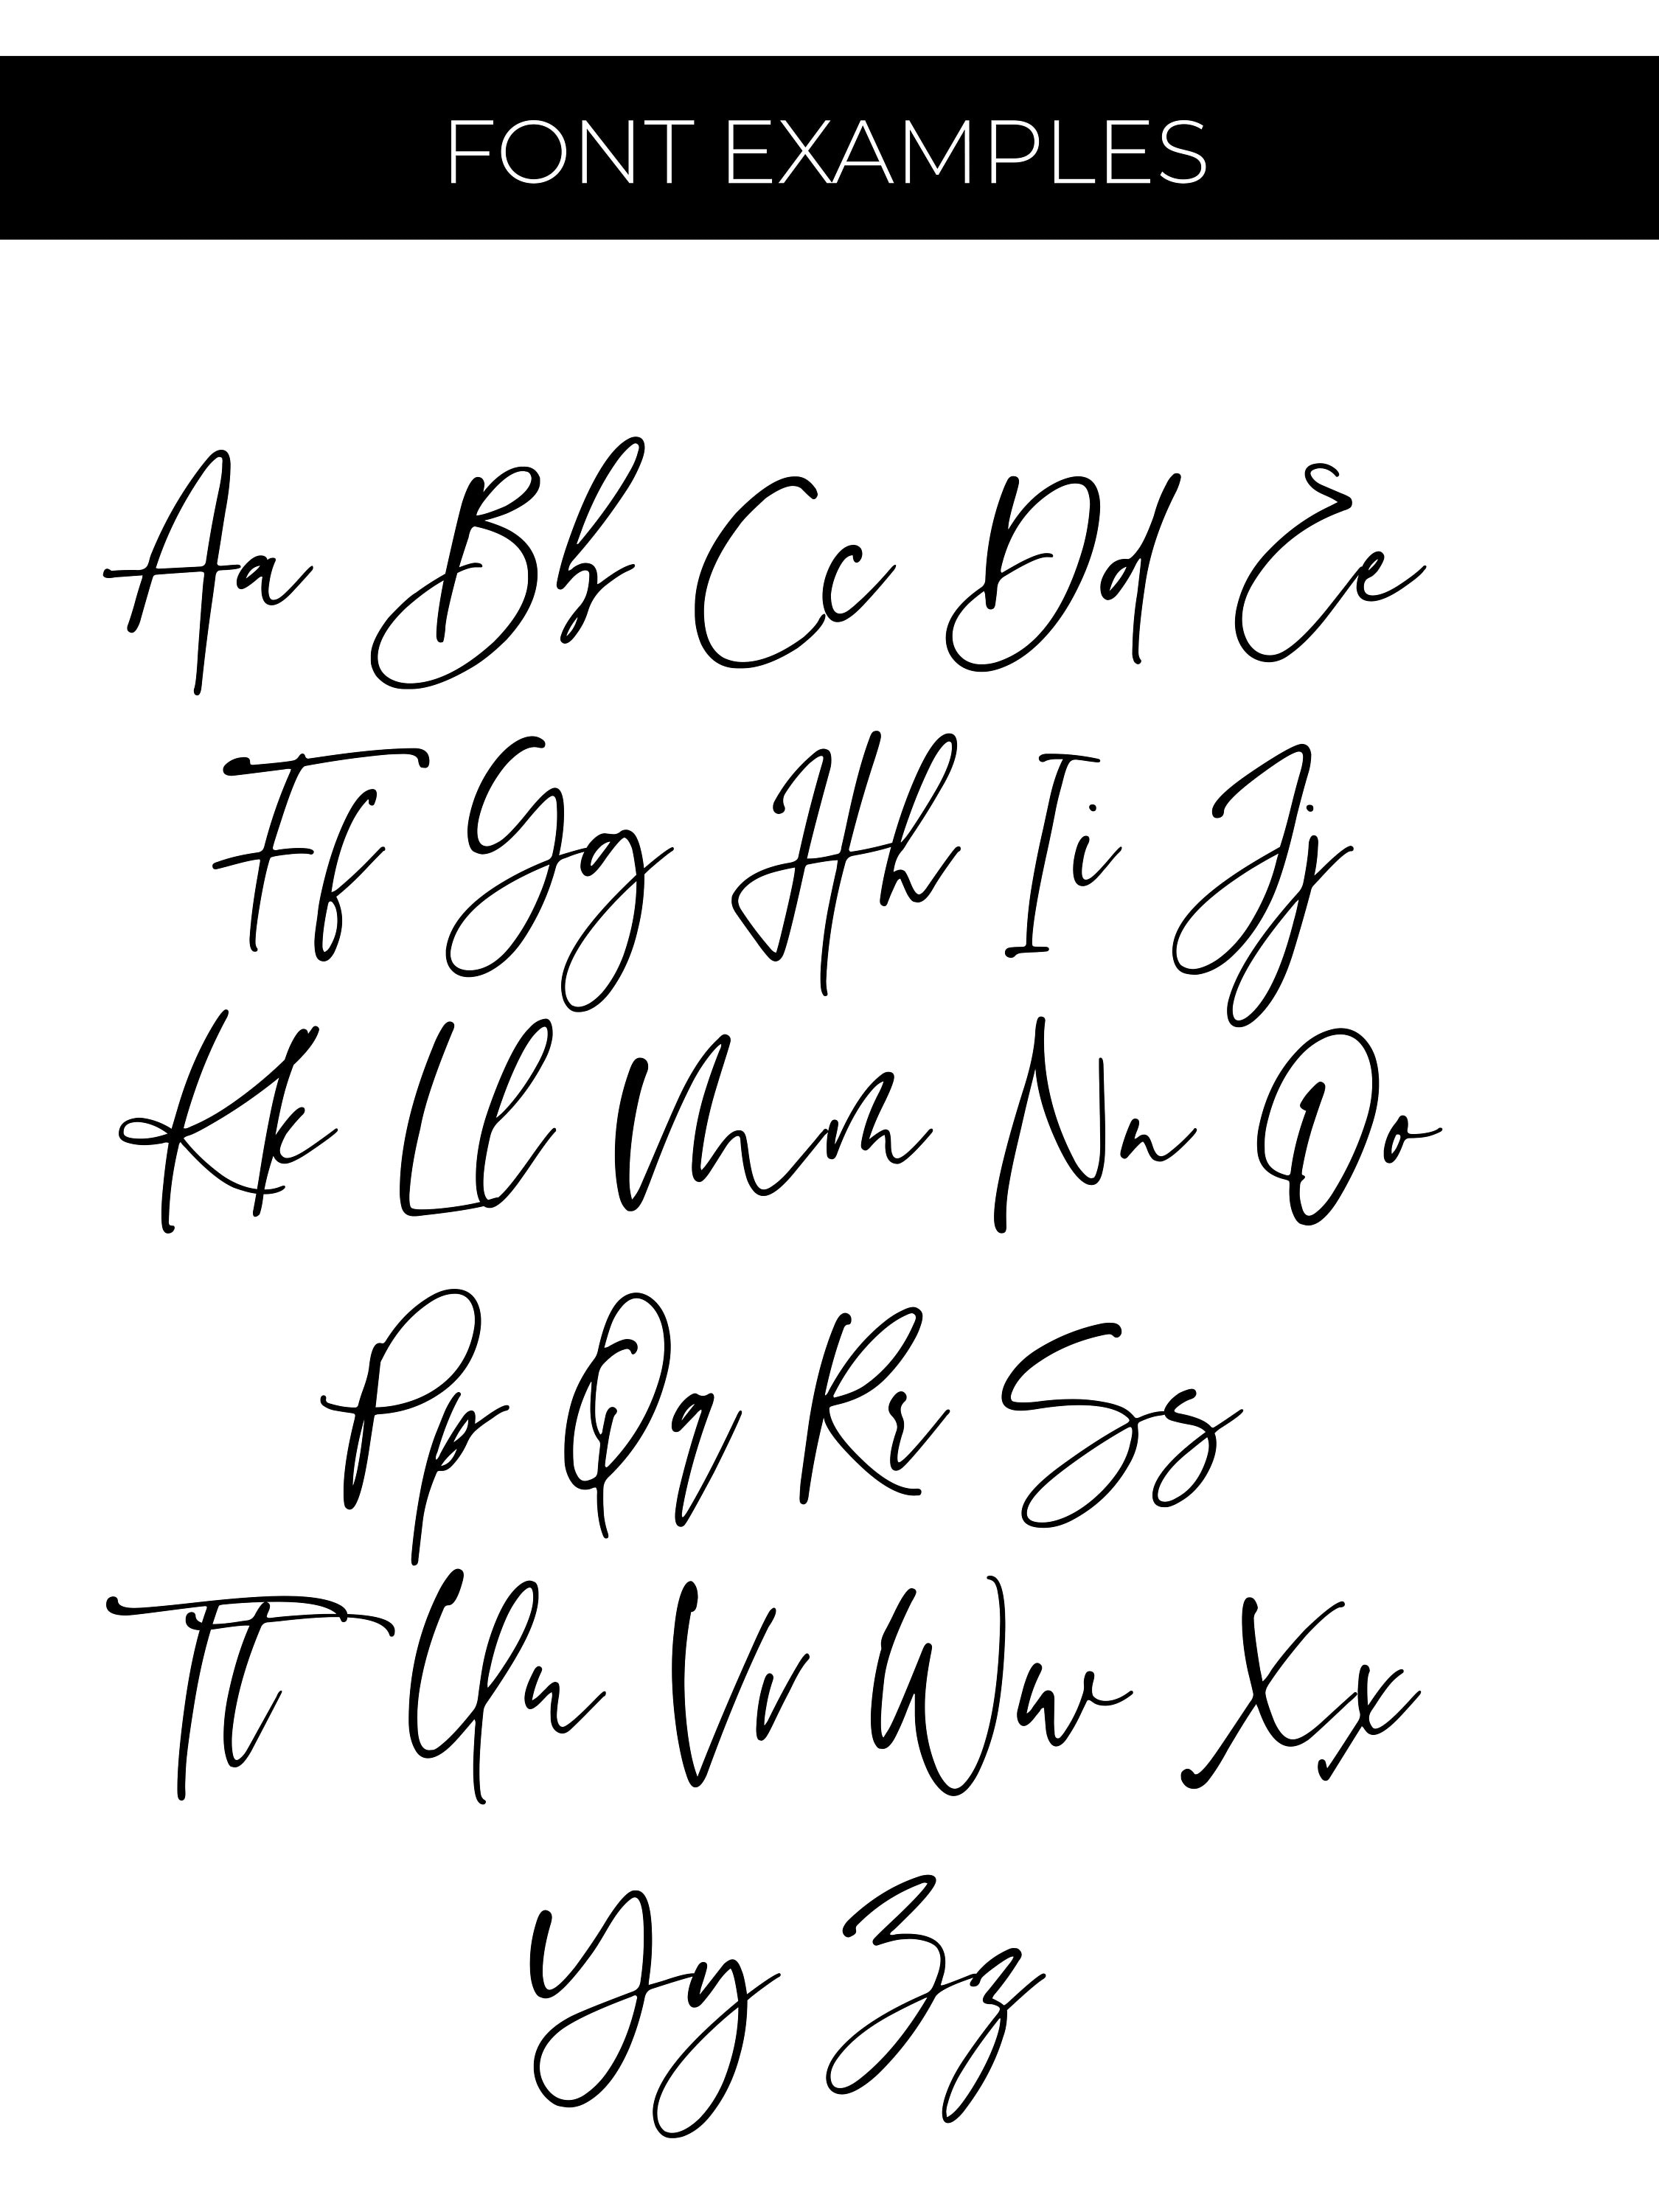 FONT EXAMPLES
Aa Bb Cc Dd Ee
Ff Gg Hh Ii Jj
Kk Ll Mm Nn Oo
Pp Qq Rr Ss
Tt Uu Vv Ww Xx
Yy Zz